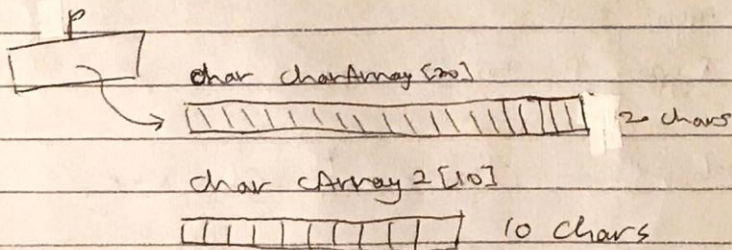 P
char charArray [20]
20 chars
char cArray 2 [10]
10 chars